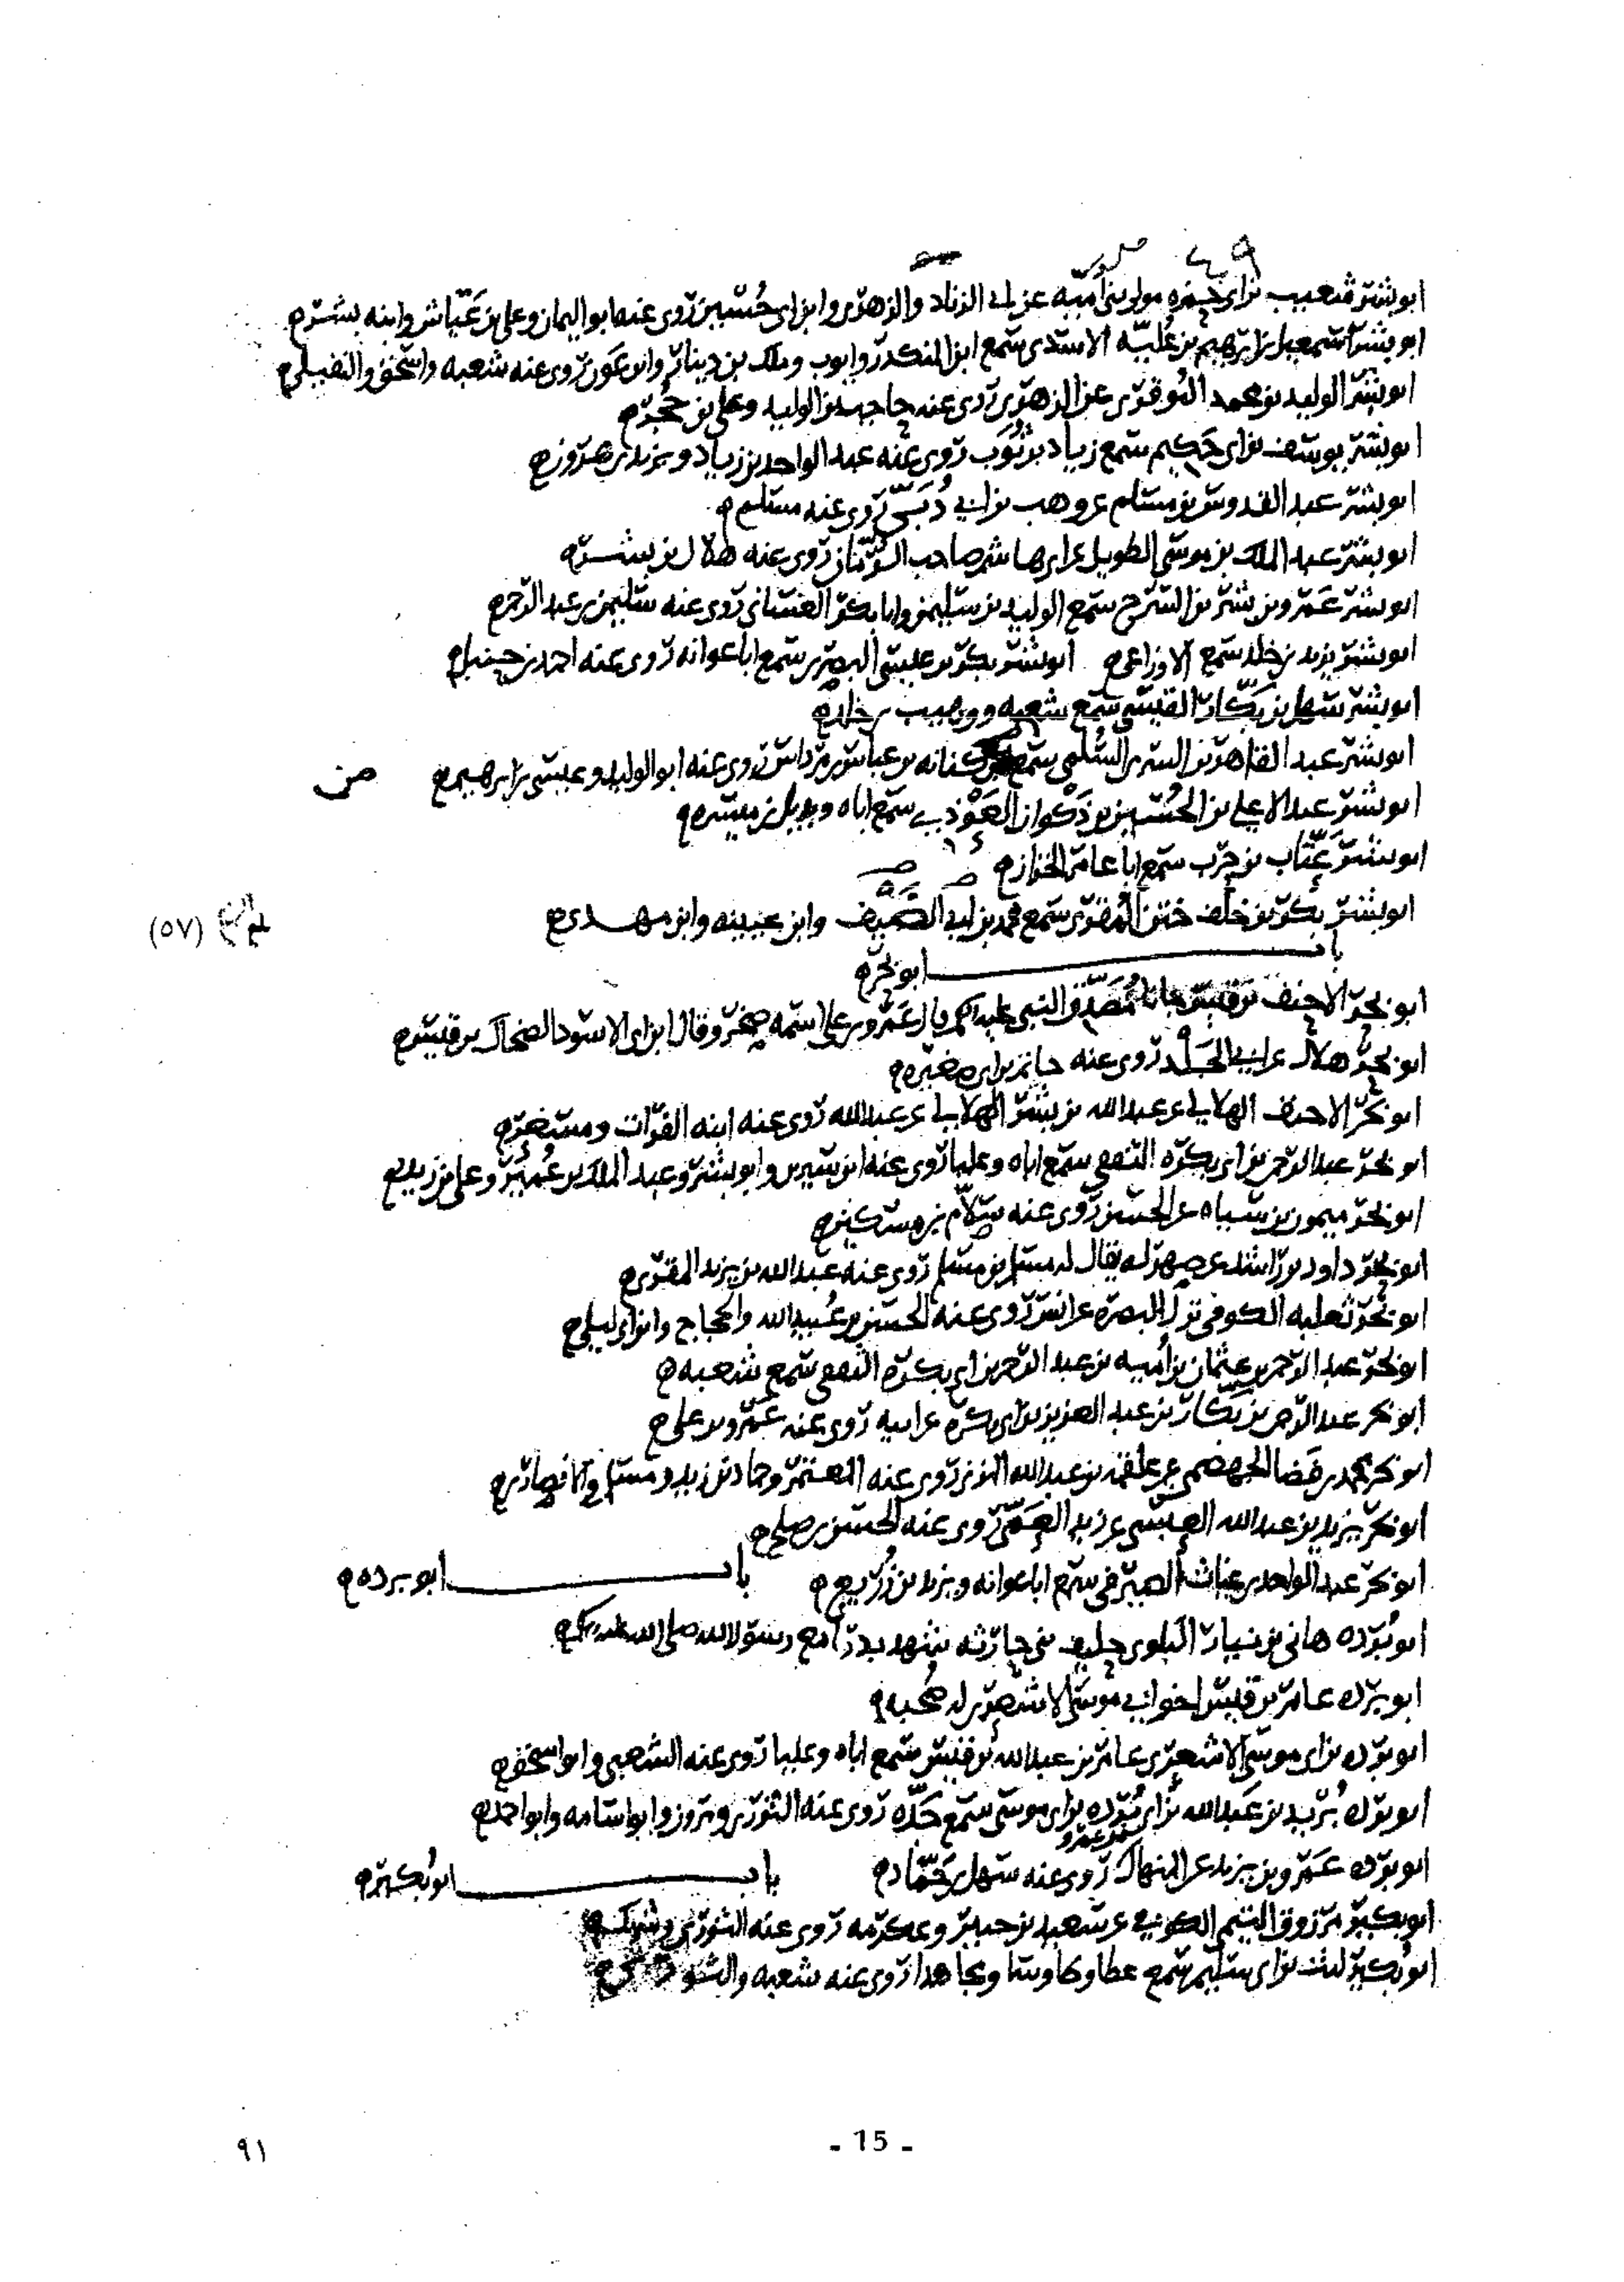 ابو بشر شعيب بن ابي حمزه مولى بني أميه عن ابي الزناد والزهري وابن ابي حُسين روى عنه ابو اليمان وعلي بن عَيّاش وابنه بشر
ابو بشر اسمعيل بن ابرهيم بن عُليّه الاسدي سمع ابن المنكدر وايوب وملك بن دينار وابن عون روى عنه شعبه واسحق والنفيلي
ابو بشر الوليد بن محمد الموقري عن الزهري روى عنه حاجب بن الوليد وعلي بن حجر
ابو بشر يوسف بن ابي حكيم سمع زياد بن ثوب روى عنه عبد الواحد بن زياد ويزيد بن هرون
ابو بشر عبد القدوس بن مسلم عن وهب بن ابي دُبَيّ روى عنه مسلم
ابو بشر عبد الملك بن موسى الطويل عن ابي هاشم صاحب الرُّمّان روى عنه هلال بن بشر
ابو بشر عَمرو بن بشر بن السرح سمع الوليد بن سليمن وابا بكر الغساني روى عنه سليمن بن عبد الرحمن
ابو بشر يزيد بن خلد سمع الاوزاعي ابو بشر بكر بن عيسى البصري سمع ابا عوانه روى عنه احمد بن حنبل
ابو بشر سهل بن بَكّار القيسي سمع شعبه ووهيب بن خلد
ابو بشر عبد القاهر بن السري السُّلمي سمع كنانه بن عباس بن مرداس روى عنه ابو الوليد وعيسى بن ابرهيم
ابو بشر عبد الاعلى بن الحسين بن ذَكوان العَوْذي سمع اباه وبديل بن ميسره
ابو بشر عَتّاب بن حرب سمع ابا عامر الخزاز
ابو بشر بكر بن خلف ختن المُقري سمع محمد بن ابي الضيف وابن عيينه وابن مهدي
(٥٧)
باب ابو بحر
ابو بحر الاحنف بن قيس جانا مُصَدّق النبي عليه السلم قال عَمرو بن علي اسمه صخر وقال ابن ابي الاسود الضحاك بن قيس
ابو بحر هلال عن ابي روى عنه حاتم بن ابي صغيره
ابو بحر الاحنف الهلالي عن عبد الله بن بشر الهلالي عن عبد الله روى عنه ابنه الفرات ومسعر
ابو بحر عبد الرحمن بن ابي بكره الثقفي سمع اباه وعليا روى عنه ابن سيرين وابو بشر وعبد الملك بن عُمير وعلي بن زيد
ابو بحر ميمون بن سياه عن الحسن روى عنه سلّام بن مسكين
ابو بحر داود بن راشد عن صهر له يقال له مسلم بن مسلم روى عنه عبد الله بن يزيد المقري
ابو بحر ثعلبه الكوفي نزل البصره عن انس روى عنه الحسن بن عُبيد الله والحجاج وابن ابي ليلى
ابو بحر عبد الرحمن بن عثمان بن أميه بن عبد الرحمن بن ابي بكره الثقفي سمع شعبه
ابو بحر عبد الرحمن بن بَكّار بن عبد العزيز بن ابي بكره عن ابيه روى عنه عَمرو بن علي
ابو بحر محمد بن فضا الجهضمي عن علقمه بن عبد الله المزني روى عنه المعتمر وحماد بن زيد ومسلم والانصاري
ابو بحر يزيد بن عبد الله العبسي عن زيد العَمّي روى عنه الحسن بن صلح
ابو بحر عبد الواحد بن غياث الصيرفي سمع ابا عوانه ويزيد بن زُريع باب ابو برده
ابو بُرده هاني بن نيار البلوي حليف بني حارثه شهد بدرا مع رسول الله صلى الله عليه وسلم
ابو برده عامر بن قيس اخو ابي موسى الاشعري له صُحبه
ابو برده بن ابي موسى الاشعري عامر بن عبد الله بن قيس سمع اباه وعليا روى عنه الشعبي وابو اسحق
ابو برده بُريد بن عبد الله بن ابي بُرده بن ابي موسى سمع جَدّه روى عنه الثوري ومروان وابو اسامه وابو احمد
ابو برده عَمرو بن يزيد عن المنهال روى عنه سهل بن حَمّاد باب ابو بُكير
ابو بكير مرزوق التيمي الكوفي عن سعيد بن جبير وعكرمه روى عنه الثوري وشريك
ابو بُكير ليث بن ابي سليم سمع عطا وطاوسا ومجاهدا روى عنه شعبه والثوري
- 15 -
٩١